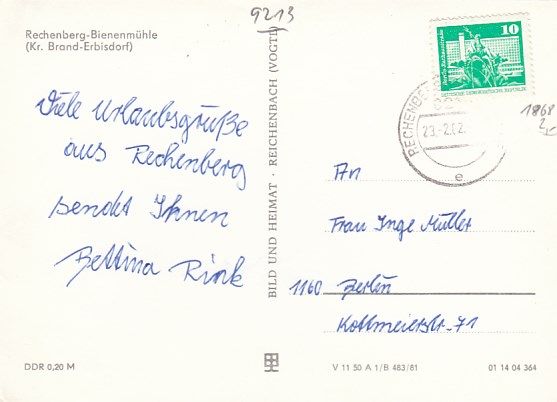 9213
Rechenberg-Bienenmühle
(Kr. Brand-Erbisdorf)
Viele Urlaubsgrüße
aus Rechenberg
sendet Ihnen
Bettina Rink
DDR 0,20 M
BILD UND HEIMAT · REICHENBACH (VOGTL)
10
DEUTSCHE DEMOKRATISCHE REPUBLIK
e
1868
An
Frau Inge Müller
1160 Berlin
Kottmeierstr. 71
V 11 50 A 1/B 483/81
01 14 04 364